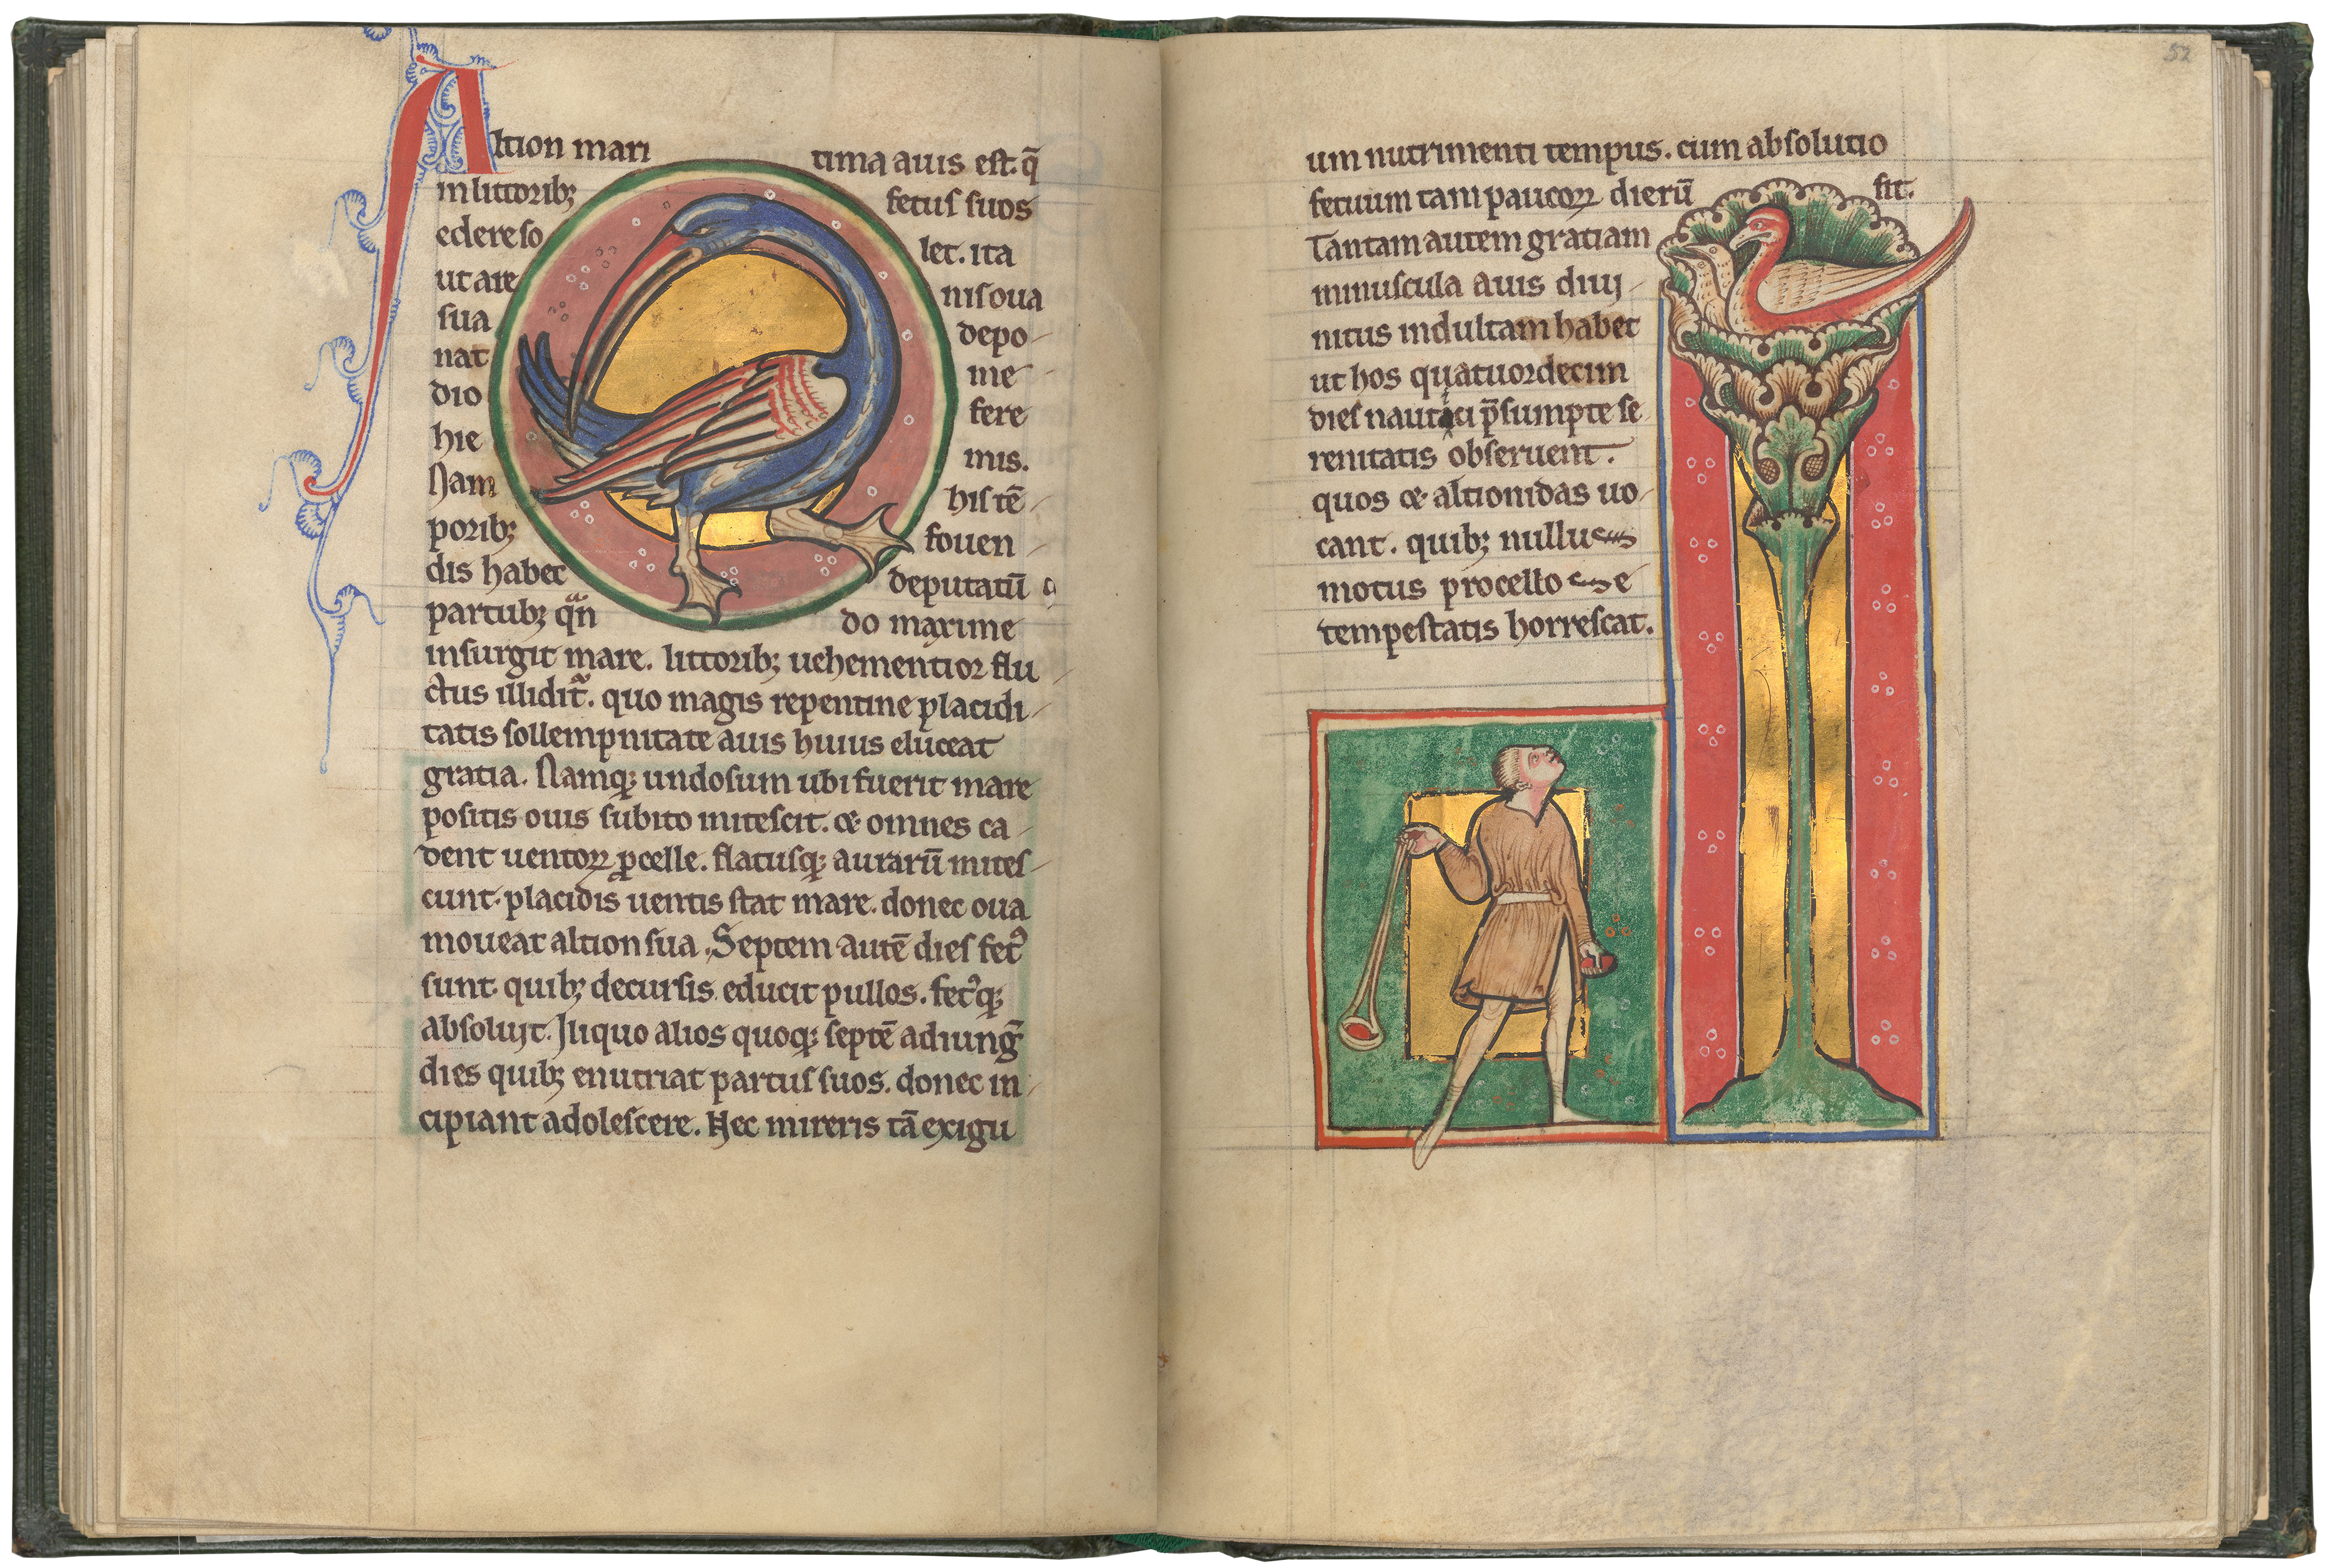 Altion mari tima auis eſt. q̄
in littorib; fetuſ ſuos
edere ſo let. ita
ut are niſ oua
ſua depo
nat me
dio fere
hie mis.
Nam hiſ tē
porib; fouen
dis habet deputatū
partub; qn̄ do maxime
inſurgit mare. littorib; uehementior flu
ctus illidit. quo magis repentine placidi
tatis ſollempnitate auis huius eluceat
gratia. Namq; undoſum ubi fuerit mare
poſitis ouis ſubito miteſcit. & omnes ca
dent uentoꝝ ꝓcelle. flatuſq; aurarū miteſ
cunt. placidis uentis ſtat mare. donec oua
moueat altion ſua. Septem autē dieſ fetꝰ
ſunt. quib; decurſis educit pullos. fetꝰq;
abſoluit. Iliquo alios quoq; ſeptē adiunḡ
dies quib; enutriat partuſ ſuos. donec in
cipiant adoleſcere. Nec mireris tā exigu
52
um nutrimenti tempus. cum abſolutio
fetuum tam paucoꝝ dierū ſit.
Tantam autem gratiam
minuſcula auis diui
nitus indultam habet
ut hos quatuordecim
dieſ nautici p̄ſumpte ſe
renitatis obſeruent.
quos & altionidas uo
cant. quib; nullus
motus procelloſe
tempeſtatis horreſcat.